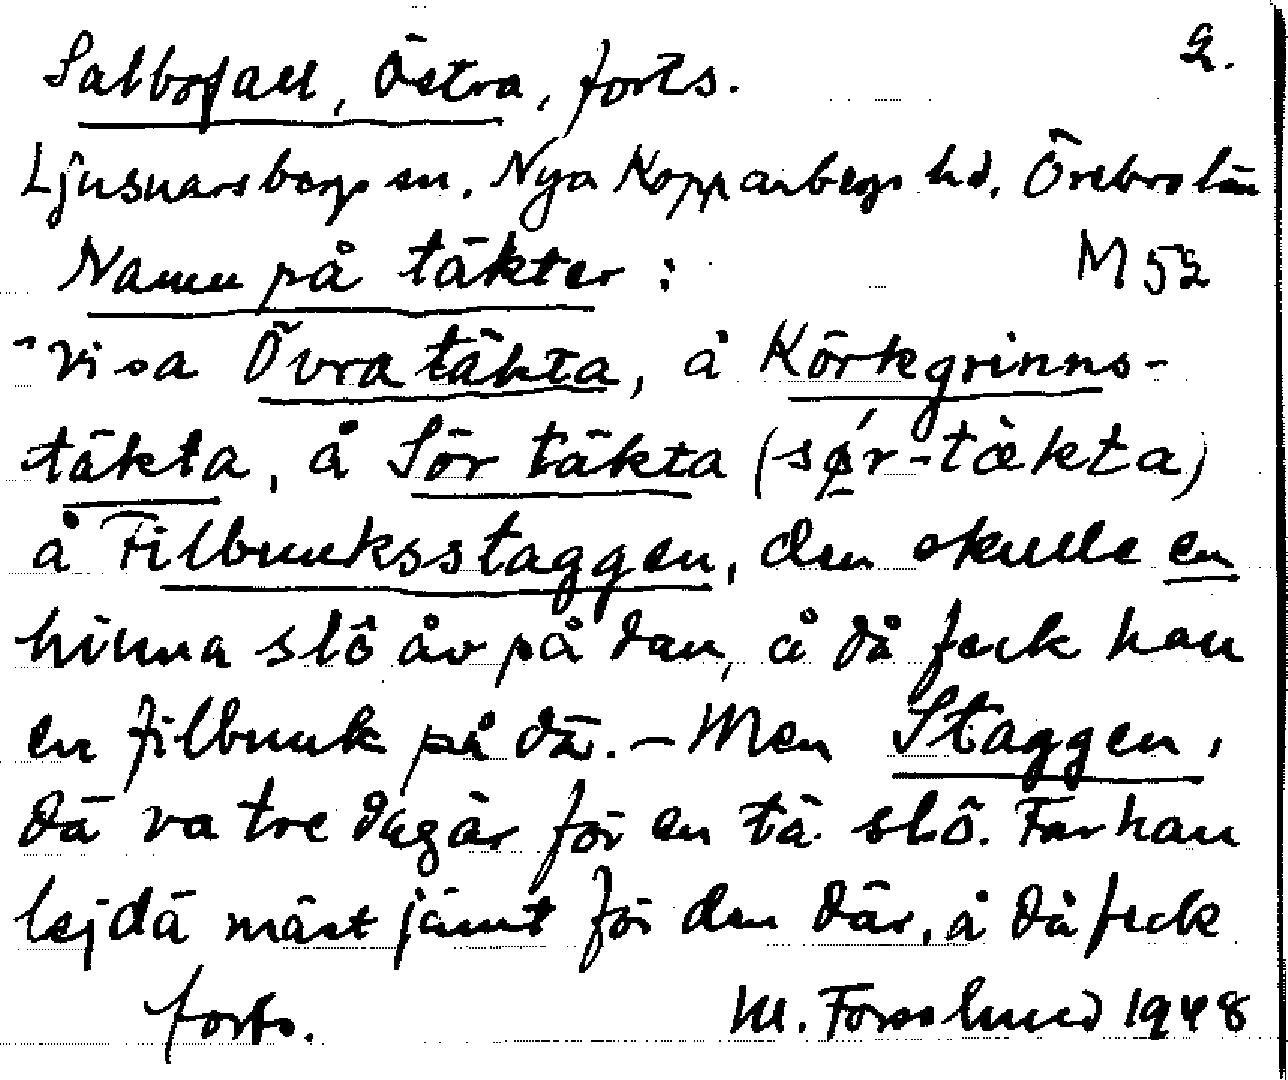 2.
Salbofall, Östra, forts.
Ljusnarsbergs sn. Nya Kopparbergs hd. Örebro län
Namn på täkter : M 52
- Vi sa Övra täkta, å Körkgrinns-
täkta, å Sör täkta (sǿr-tækta)
å Filbunksstaggen, den skulle en
hinna slô åv på dan, å då feck han
en filbunk på dä. - Men Staggen,
dä va tre dagär för en tä slô. Far han
lejdä mäst jämt för den där, å då feck
forts. M. Forsslund 1948